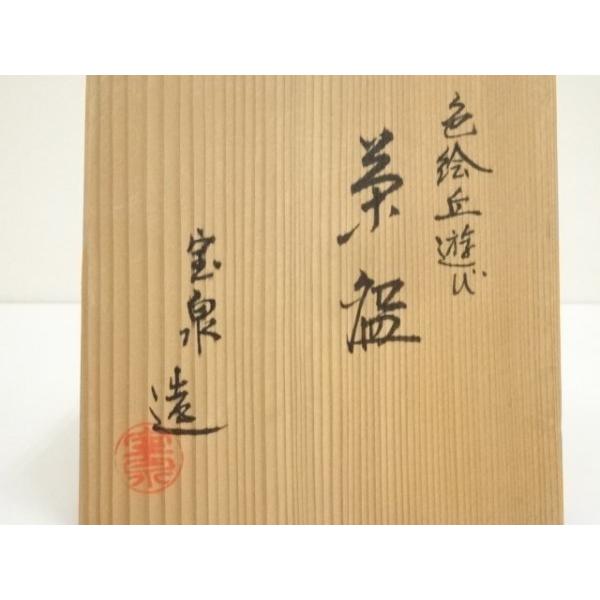 色絵丘遊び
茶盌
宝泉造
宝泉